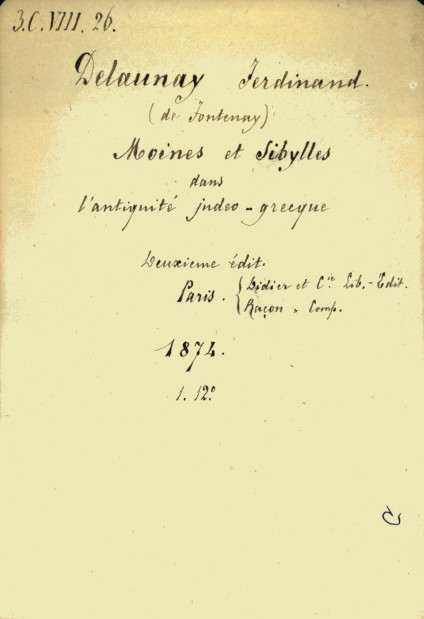 3.C.VIII.26.
Delaunay Ferdinand.
(de Fontenay)
Moines et Sibylles
dans
l'antiquité judeo-grecque
Deuxieme édit.
Paris. { Didier et C.ie Lib.-Edit.
Raçon " Comp.
1874.
1. 12º